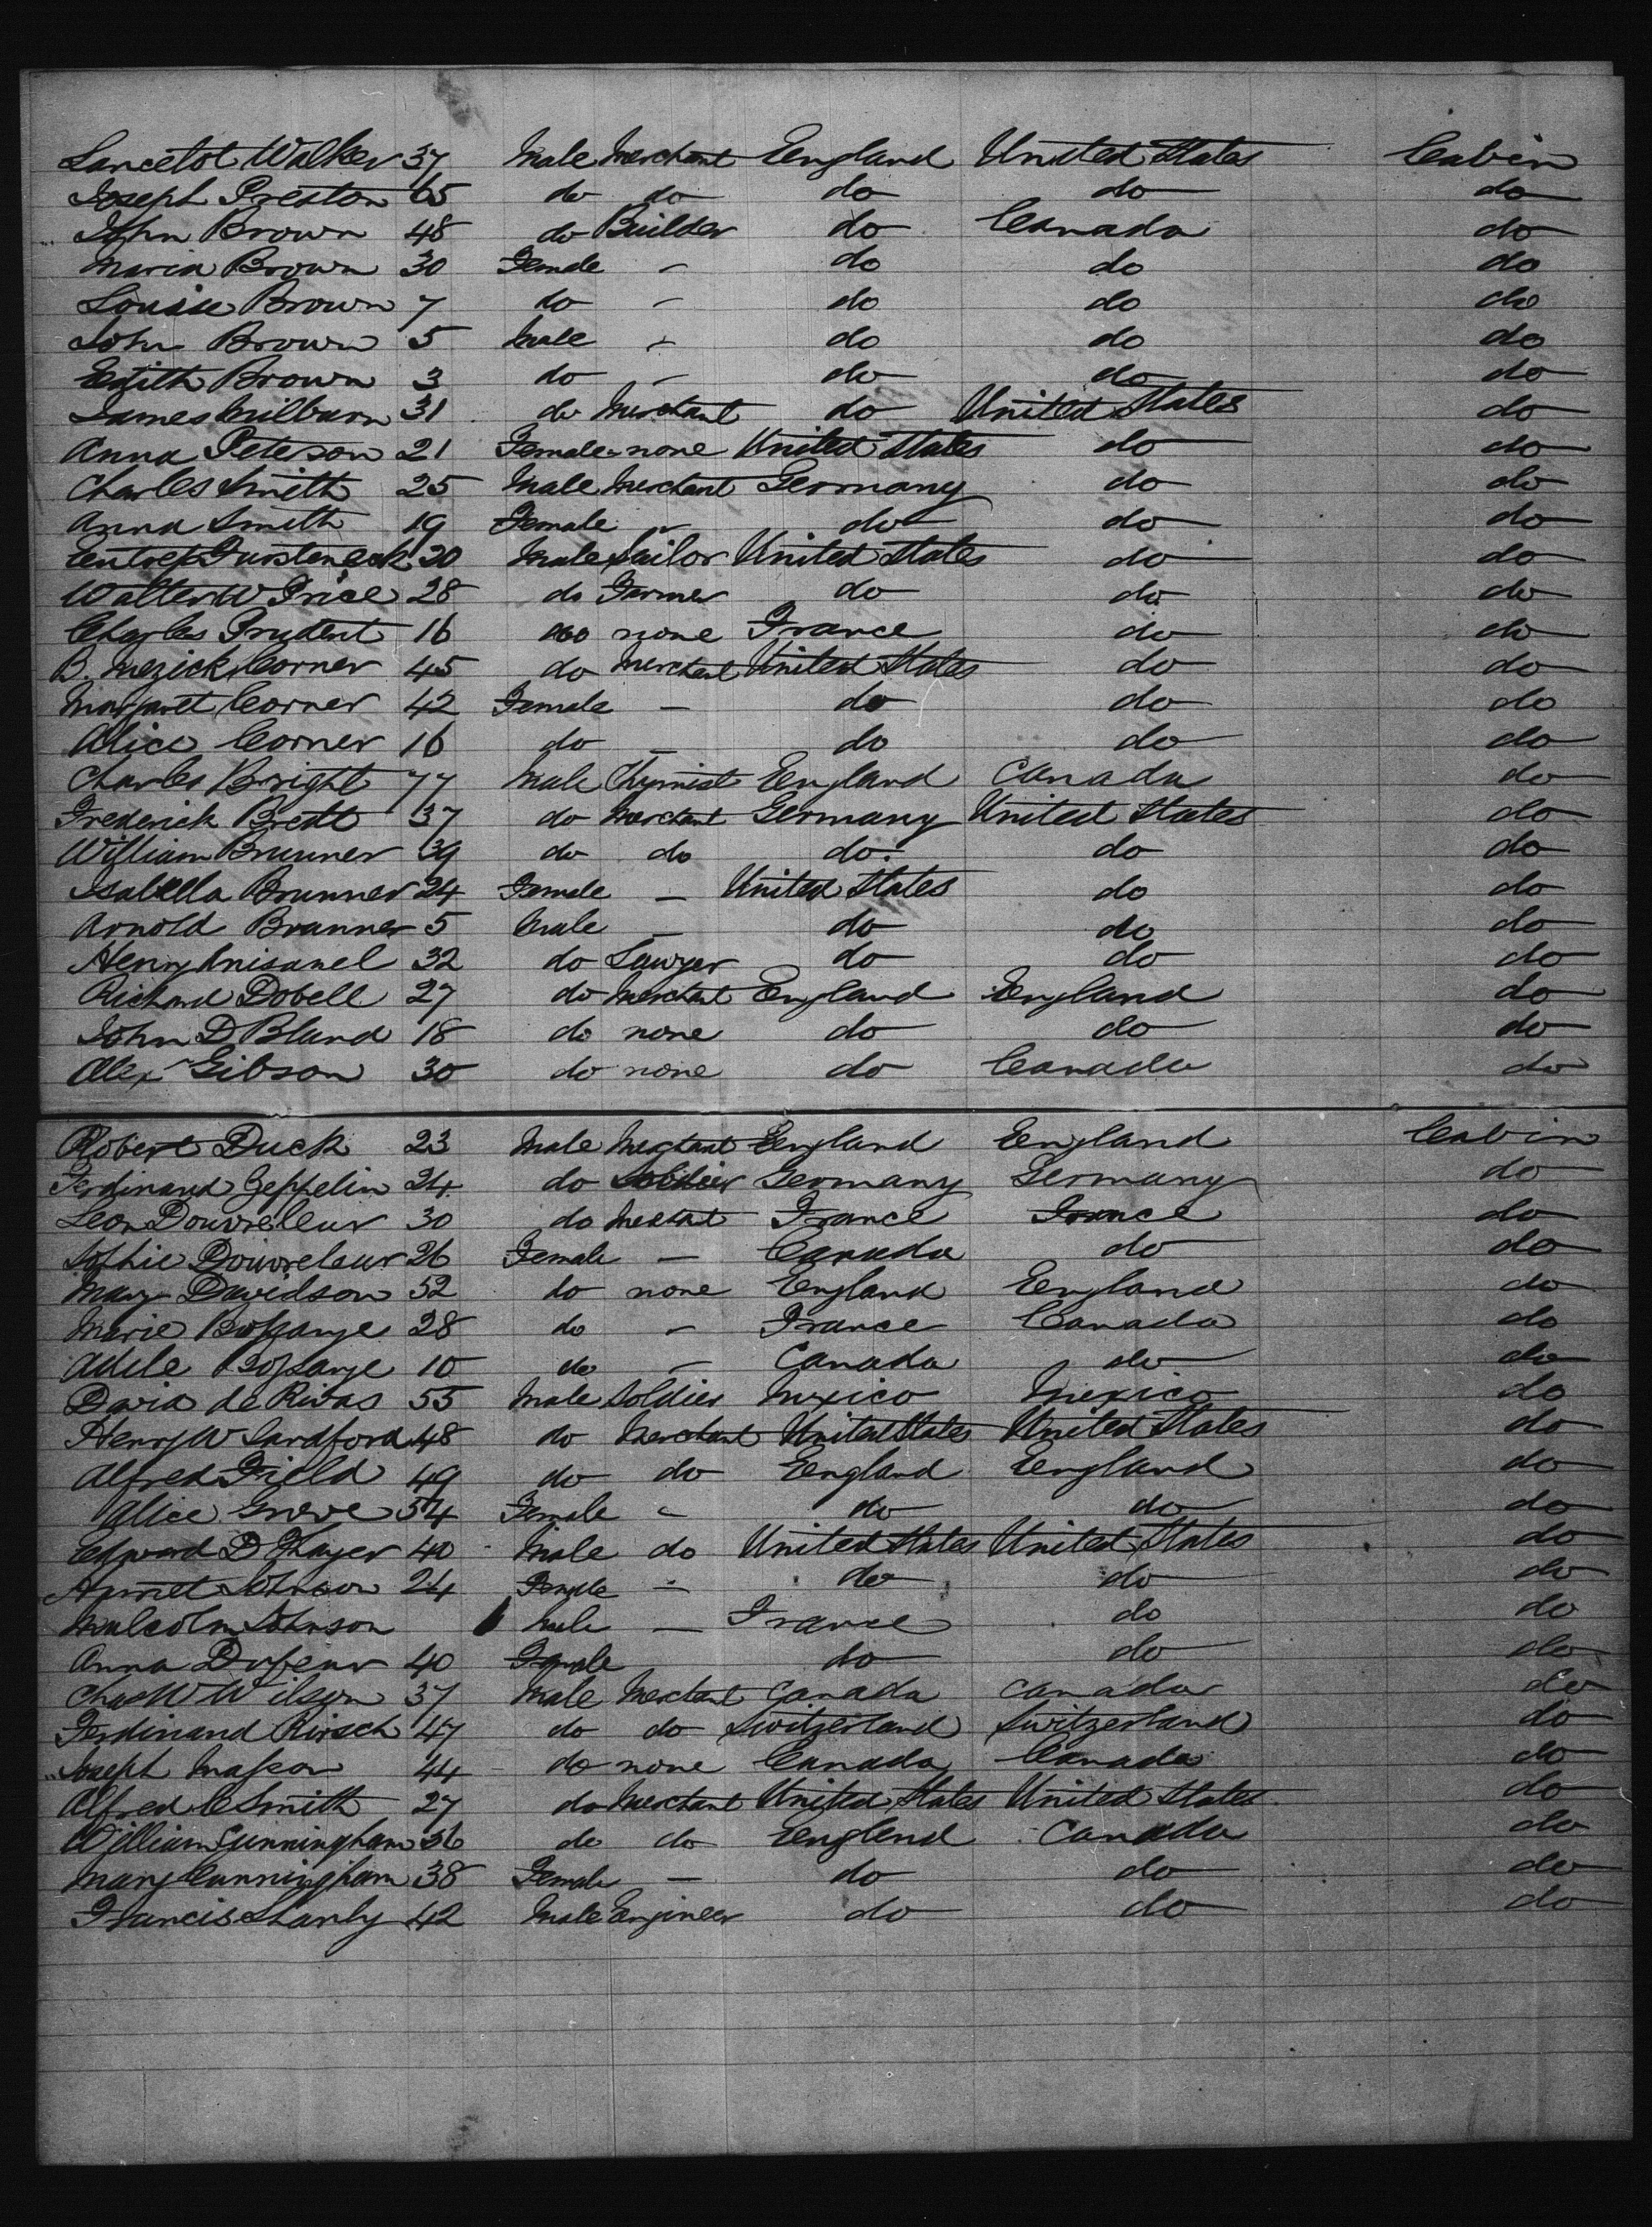 Lancelot Walker 37 Male Merchant England United States Cabin
Joseph Preston 65 do do do do do
John Brown 48 do Builder do Canada do
Maria Brown 30 Female - do do do
Louise Brown 7 do - do do do
John Brown 5 Male - do do do
Edith Brown 3 do - do do do
James Milburn 31 do Merchant do United States do
Anna Peterson 21 Female none United States do do
Charles Smith 25 Male Merchant Germany do do
Anna Smith 19 Female - do do do
20 Male Sailor United States do do
Walter W Price 28 do Farmer do do do
Charles Prudent 16 do none France do do
B. Mezick Corner 45 do Merchant United States do do
Margaret Corner 42 Female - do do do
Alice Corner 16 do - do do do
Charles Bright 77 Male Chymist England Canada do
Frederick Bredt 37 do Merchant Germany United States do
William Brunner 39 do do do. do do
Isabella Brunner 24 Female - United States do do
Arnold Brunner 5 Male - do do do
Henry 32 do Lawyer do do do
Richard Dobell 27 do Merchant England England do
John D Bland 18 do none do do do
Alex Gibson 30 do none do Canada do
Robert Duck 23 Male Merchant England England Cabin
Ferdinand Zeppelin 24 do Soldier Germany Germany do
Leon 30 do Merchant France France do
Sophie 26 Female - Canada do do
Mary Davidson 52 do none England England do
Marie Bossange 28 do - France Canada do
Adele Bossange 10 do - Canada do do
David de Rivas 55 Male Soldier Mexico Mexico do
Henry W Sandford 48 do Merchant United States United States do
Alfred Field 49 do do England England do
Alice Greve 34 Female - do do do
Edward D Thayer 40 Male do United States United States do
Johnson 24 Female - do do do
Malcolm Johnson Male - France do do
Anna 40 Female do do do
Chas W Wilson 37 Male Merchant Canada Canada do
Ferdinand Hirsch 47 do do Switzerland Switzerland do
Joseph Masson 44 do none Canada Canada do
Alfred C Smith 27 do Merchant United States United States do
William Cunningham 36 do do England Canada do
Mary Cunningham 38 Female - do do do
Francis Shanly 42 Male Engineer do do do